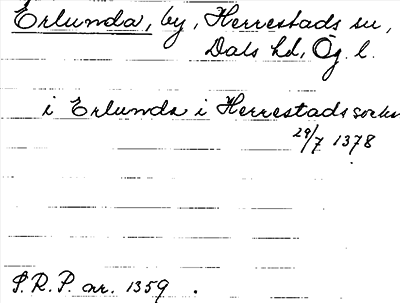 Erlunda, by, Herrestads sn,
Dals hd, Ög. l.
i Erlunda i Herrestads socken
29/7 1378
S.R.P. nr. 1359.